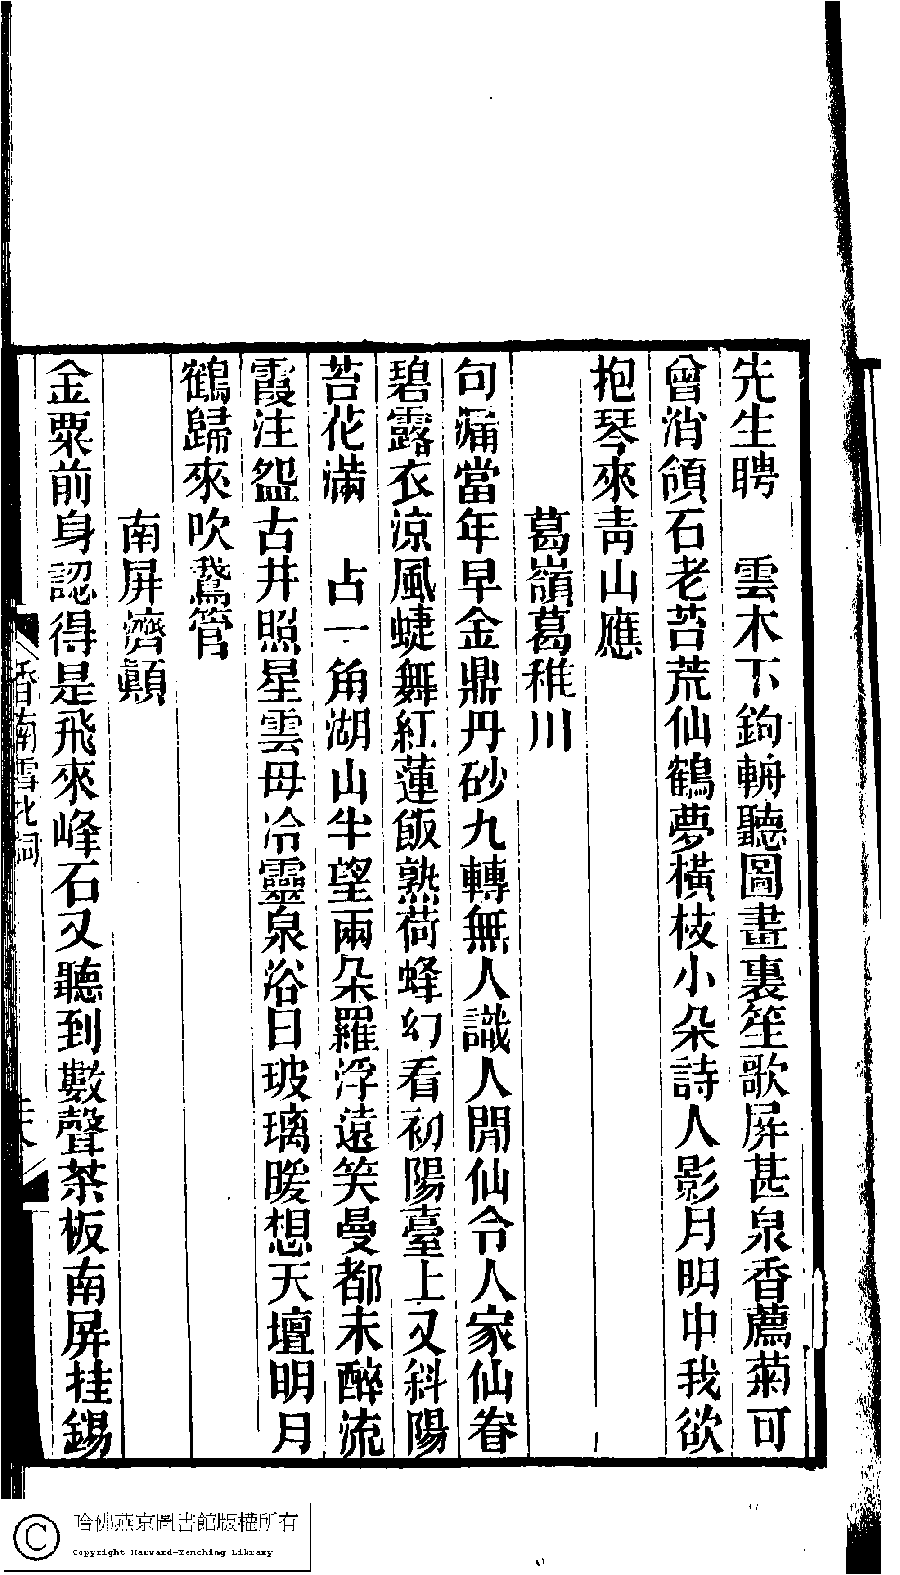 先生聘　雲木下鉤輈聽圖畫裏笙歌屏甚泉香薦菊可
曾消領石老苔荒仙鶴夢橫枝小朵詩人影月明中我欲
抱琴來青山應
葛嶺葛稚川
句漏當年早金鼎丹砂九轉無人識人閒仙令人家仙眷
碧露衣涼風蜨舞紅蓮飯熟荷蜂幻看初陽臺上又斜陽
苔花滿　占一角湖山半望兩朵羅浮遠笑曼都未醉流
霞注盌古井照星雲母冷靈泉浴日玻璃暖想天壇明月
鶴歸來吹鵞管
南屏濟顚
金粟前身認得是飛來峰石又聽到數聲茶板南屏桂錫
香南雪北詞
哈佛燕京圖書館版權所有
Copyright Harvard-Yenching Library